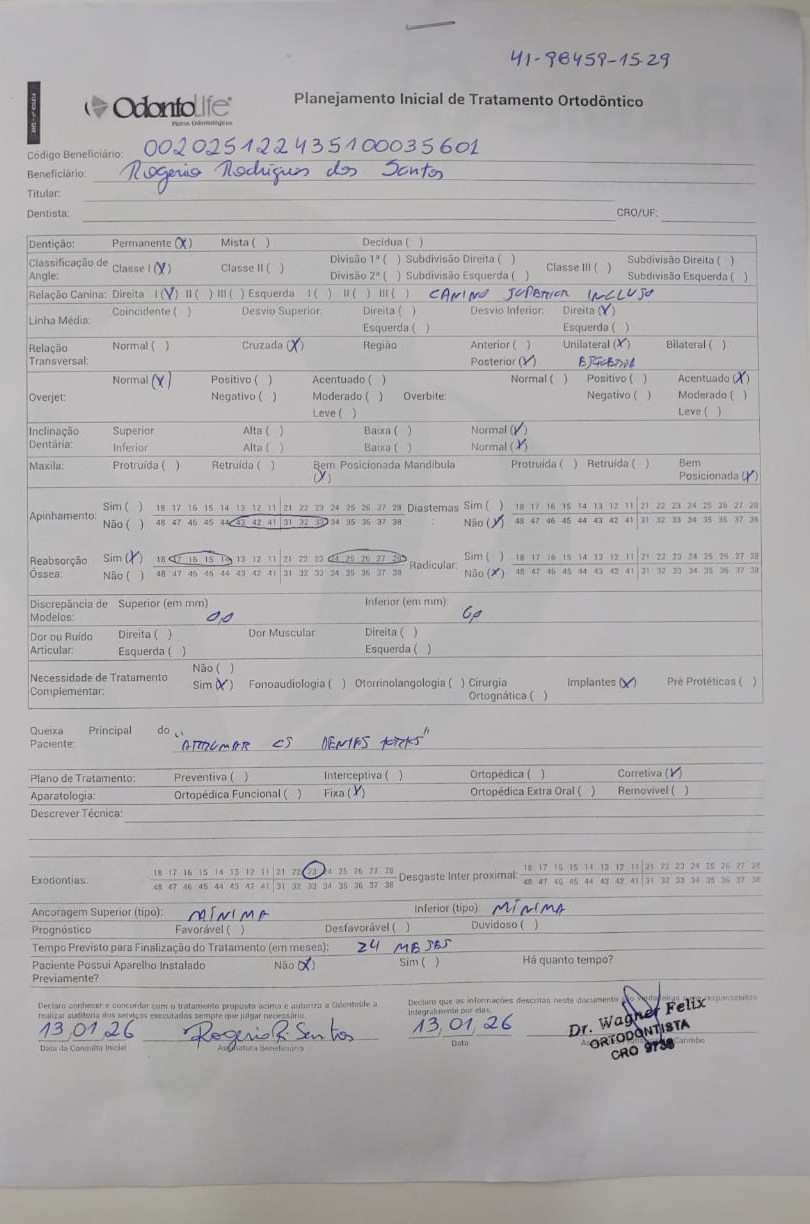 41-98459-1529
OdontoLife
Planos Odontológicos
Planejamento Inicial de Tratamento Ortodôntico
Código Beneficiário: 002025122435100035601
Beneficiário: Rogerio Rodrigues dos Santos
Titular:
Dentista: CRO/UF:
Dentição: Permanente (X) Mista ( ) Decídua ( )
Classificação de Angle: Classe I (X) Classe II ( ) Divisão 1ª ( ) Subdivisão Direita ( ) Classe III ( ) Subdivisão Direita ( )
Divisão 2ª ( ) Subdivisão Esquerda ( ) Subdivisão Esquerda ( )
Relação Canina: Direita I (X) II ( ) III ( ) Esquerda I ( ) II ( ) III ( ) CANINO SUPERIOR INCLUSO
Linha Média: Coincidente ( ) Desvio Superior: Direita ( ) Desvio Inferior: Direita (X)
Esquerda ( ) Esquerda ( )
Relação Transversal: Normal ( ) Cruzada (X) Região Anterior ( ) Unilateral (X) Bilateral ( )
Posterior (X)
Overjet: Normal (X) Positivo ( ) Acentuado ( ) Overbite: Normal ( ) Positivo ( ) Acentuado (X)
Negativo ( ) Moderado ( ) Negativo ( ) Moderado ( )
Leve ( ) Leve ( )
Inclinação Dentária: Superior Alta ( ) Baixa ( ) Normal (X)
Inferior Alta ( ) Baixa ( ) Normal (X)
Maxila: Protruída ( ) Retruída ( ) Bem Posicionada (X) Mandíbula Protruída ( ) Retruída ( ) Bem Posicionada (X)
Apinhamento: Sim ( ) 18 17 16 15 14 13 12 11 21 22 23 24 25 26 27 28 Diastemas : Sim ( ) 18 17 16 15 14 13 12 11 21 22 23 24 25 26 27 28
Não ( ) 48 47 46 45 44 43 42 41 31 32 33 34 35 36 37 38 Não (X) 48 47 46 45 44 43 42 41 31 32 33 34 35 36 37 38
Reabsorção Óssea: Sim (X) 18 17 16 15 14 13 12 11 21 22 23 24 25 26 27 28 Radicular: Sim ( ) 18 17 16 15 14 13 12 11 21 22 23 24 25 26 27 28
Não ( ) 48 47 46 45 44 43 42 41 31 32 33 34 35 36 37 38 Não (X) 48 47 46 45 44 43 42 41 31 32 33 34 35 36 37 38
Discrepância de Modelos: Superior (em mm) Inferior (em mm):
Dor ou Ruído Articular: Direita ( ) Dor Muscular Direita ( )
Esquerda ( ) Esquerda ( )
Necessidade de Tratamento Complementar: Não ( )
Sim (X) Fonoaudiologia ( ) Otorrinolangologia ( ) Cirurgia Ortognática ( ) Implantes (X) Pré Protéticas ( )
Queixa Principal do Paciente: "ARRUMAR OS DENTES
Plano de Tratamento: Preventiva ( ) Interceptiva ( ) Ortopédica ( ) Corretiva (X)
Aparatologia: Ortopédica Funcional ( ) Fixa (X) Ortopédica Extra Oral ( ) Removível ( )
Descrever Técnica:
Exodontias: 18 17 16 15 14 13 12 11 21 22 23 24 25 26 27 28 Desgaste Inter proximal: 18 17 16 15 14 13 12 11 21 22 23 24 25 26 27 28
48 47 46 45 44 43 42 41 31 32 33 34 35 36 37 38 48 47 46 45 44 43 42 41 31 32 33 34 35 36 37 38
Ancoragem Superior (tipo): MÍNIMA Inferior (tipo): MÍNIMA
Prognóstico Favorável ( ) Desfavorável ( ) Duvidoso ( )
Tempo Previsto para Finalização do Tratamento (em meses): 24 MESES
Paciente Possui Aparelho Instalado Previamente? Não (X) Sim ( ) Há quanto tempo?
Declaro conhecer e concordar com o tratamento proposto acima e autorizo a Odontolife a
realizar auditoria dos serviços executados sempre que julgar necessário.
Declaro que as informações descritas neste documento são verdadeiras e me responsabilizo
integralmente por elas.
13,01,26 Rogerio R. Santos 13,01,26
Data da Consulta Inicial Assinatura Beneficiário Data Carimbo
Dr. Wagner Felix
ORTODONTISTA
CRO 9738